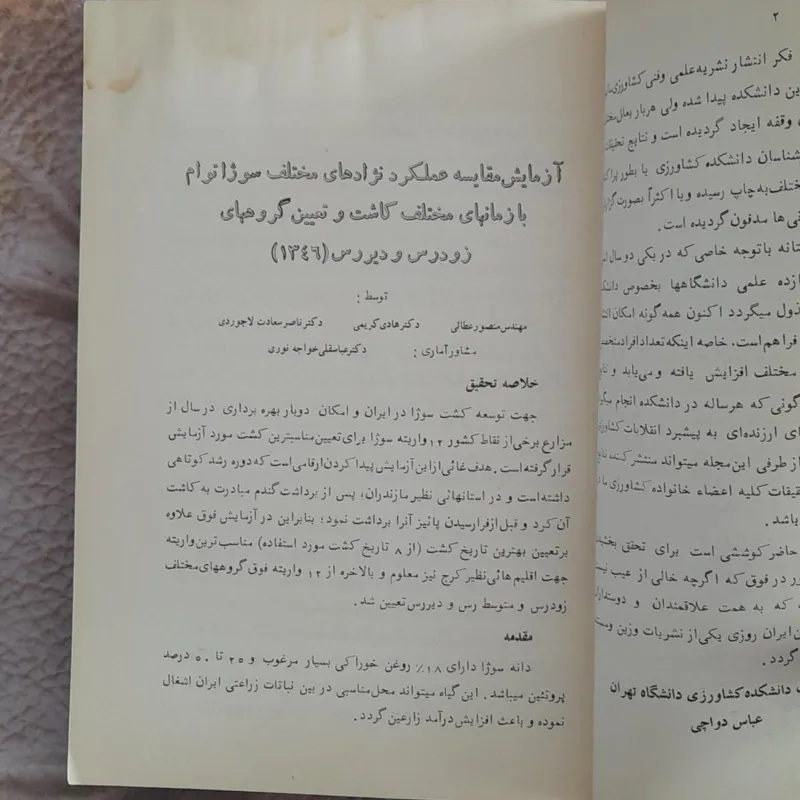 ۲
فکر انتشار نشریه علمی وفنی کشاورزی
ین دانشکده پیدا شده ولی هربار بعلل
وقفه ایجاد گردیده است و نتایج
شناسان دانشکده کشاورزی یا بطور
ختلف به چاپ رسیده ویا اکثراً بصورت
نی‌ها مدفون گردیده است .
تانه باتوجه خاصی که در یکی دو سال
ازده علمی دانشگاهها بخصوص
ذول میگردد اکنون همه گونه امکان
فراهم است. خاصه اینکه تعداد افراد
مختلف افزایش یافته و می‌یابد و
گونی که هرساله در دانشکده انجام
ای ارزنده‌ای به پیشبرد انقلابات کشاورزی
از طرفی این مجله میتواند منتشر کننده
قیقات کلیه اعضاء خانواده کشاورزی ما
باشد .
حاضر کوششی است برای تحقق
ور در فوق که اگرچه خالی از عیب
که به همت علاقمندان و
ن ایران روزی یکی از نشریات وزین
گردد .
دانشکده کشاورزی دانشگاه تهران
عباس دواچی
آزمایش مقایسه عملکرد نژادهای مختلف سوژا توام
با زمانهای مختلف کاشت و تعیین گروههای
زودرس و دیررس (۱۳٤٦)
توسط :
مهندس منصور عطائی دکتر هادی کریمی دکتر ناصر سعادت لاجوردی
مشاور آماری : دکتر عباسقلی خواجه نوری
خلاصه تحقیق
جهت توسعه کشت سوژا در ایران و امکان دوبار بهره برداری در سال از
مزارع برخی از نقاط کشور ۱۲ واریته سوژا برای تعیین مناسبترین کشت مورد آزمایش
قرار گرفته است . هدف غائی از این آزمایش پیدا کردن ارقامی است که دوره رشد کوتاهی
داشته است و در استانهائی نظیر مازندران، پس از برداشت گندم مبادرت به کاشت
آن کرد و قبل از فرارسیدن پائیز آنرا برداشت نمود؛ بنابراین در آزمایش فوق علاوه
برتعیین بهترین تاریخ کشت (از ۸ تاریخ کشت مورد استفاده) مناسب‌ترین واریته
جهت اقلیم هائی نظیر کرج نیز معلوم و بالاخره از ۱۲ واریته فوق گروههای مختلف
زودرس و متوسط رس و دیررس تعیین شد .
مقدمه
دانه سوژا دارای ۱۸٪ روغن خوراکی بسیار مرغوب و ۲۵ تا ۵۰ درصد
پروتئین میباشد . این گیاه میتواند محل مناسبی در بین نباتات زراعتی ایران اشغال
نموده و باعث افزایش درآمد زارعین گردد .